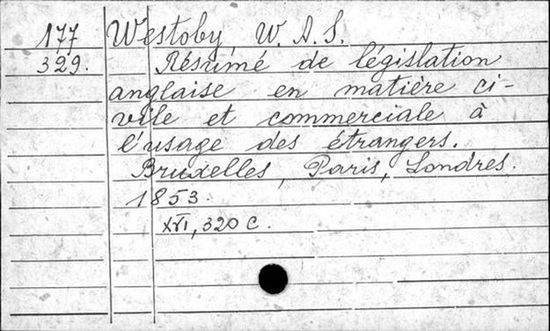 177 Westoby, W. A. S.
329. Résumé de législation
anglaise en matière ci-
vile et commerciale à
l'usage des étrangers.
Bruxelles, Paris, Londres.
1853.
XVI, 320 c.